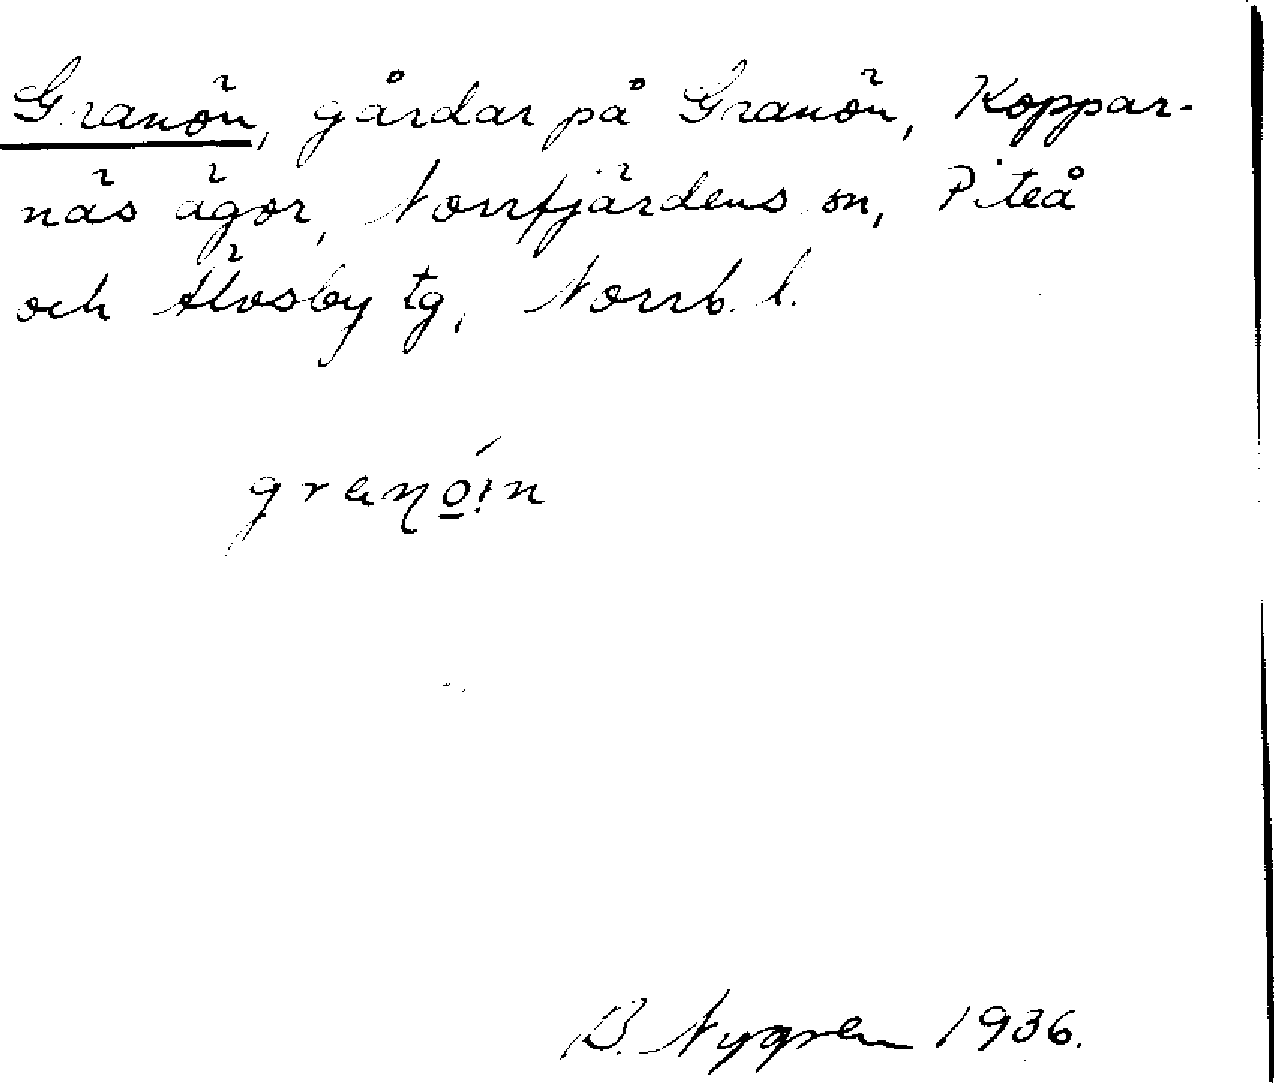 Granön, gårdar på Granön, Koppar-
näs ägor, Norrfjärdens sn, Piteå
och Älvsby tg, Norrb. l.
B. Nygren 1936.